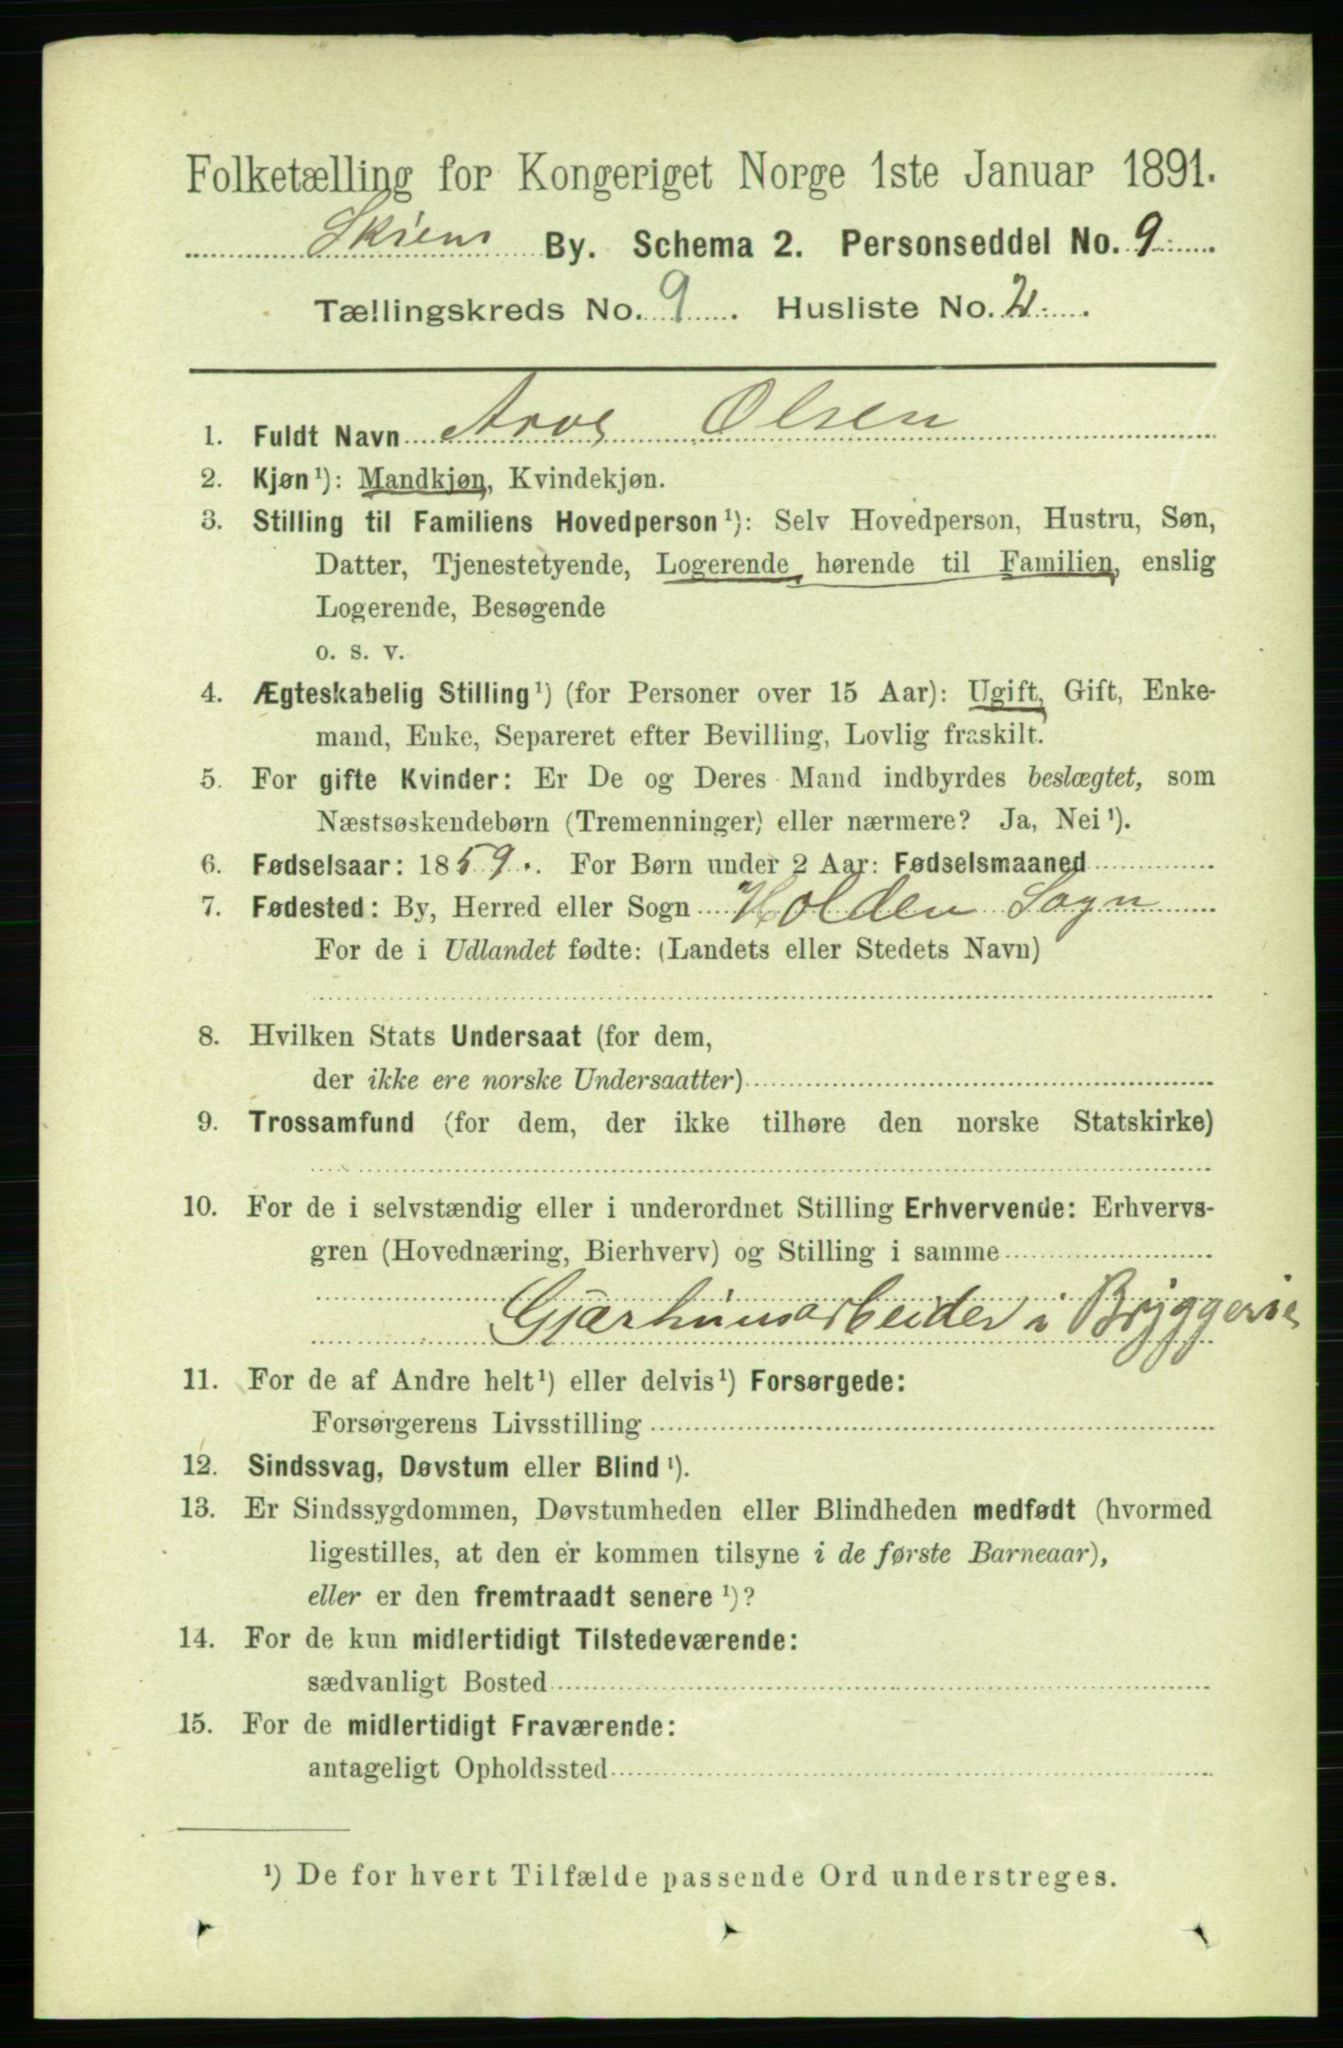 Folketælling for Kongeriget Norge 1ste Januar 1891.
Skiens By. Schema 2. Personseddel No. 9
Tællingskreds No. 9. Husliste No. 2.
1. Fuldt Navn Arve Olsen
2. Kjøn ¹): Mandkjøn, Kvindekjøn.
3. Stilling til Familiens Hovedperson ¹): Selv Hovedperson, Hustru, Søn,
Datter, Tjenestetyende, Logerende hørende til Familien, enslig
Logerende, Besøgende
o. s. v.
4. Ægteskabelig Stilling ¹) (for Personer over 15 Aar): Ugift, Gift, Enke-
mand, Enke, Separeret efter Bevilling, Lovlig fraskilt.
5. For gifte Kvinder: Er De og Deres Mand indbyrdes beslægtet, som
Næstsøskendebørn (Tremenninger) eller nærmere? Ja, Nei ¹).
6. Fødselsaar: 1859. For Børn under 2 Aar: Fødselsmaaned
7. Fødested: By, Herred eller Sogn Holden Sogn
For de i Udlandet fødte: (Landets eller Stedets Navn)
8. Hvilken Stats Undersaat (for dem,
der ikke ere norske Undersaatter)
9. Trossamfund (for dem, der ikke tilhøre den norske Statskirke)
10. For de i selvstændig eller i underordnet Stilling Erhvervende: Erhvervs-
gren (Hovednæring, Bierhverv) og Stilling i samme
Gjærhuusarbeider i Bryggerie
11. For de af Andre helt ¹) eller delvis ¹) Forsørgede:
Forsørgerens Livsstilling
12. Sindssvag, Døvstum eller Blind ¹).
13. Er Sindssygdommen, Døvstumheden eller Blindheden medfødt (hvormed
ligestilles, at den er kommen tilsyne i de første Barneaar),
eller er den fremtraadt senere ¹)?
14. For de kun midlertidigt Tilstedeværende:
sædvanligt Bosted
15. For de midlertidigt Fraværende:
antageligt Opholdssted
¹) De for hvert Tilfælde passende Ord understreges.